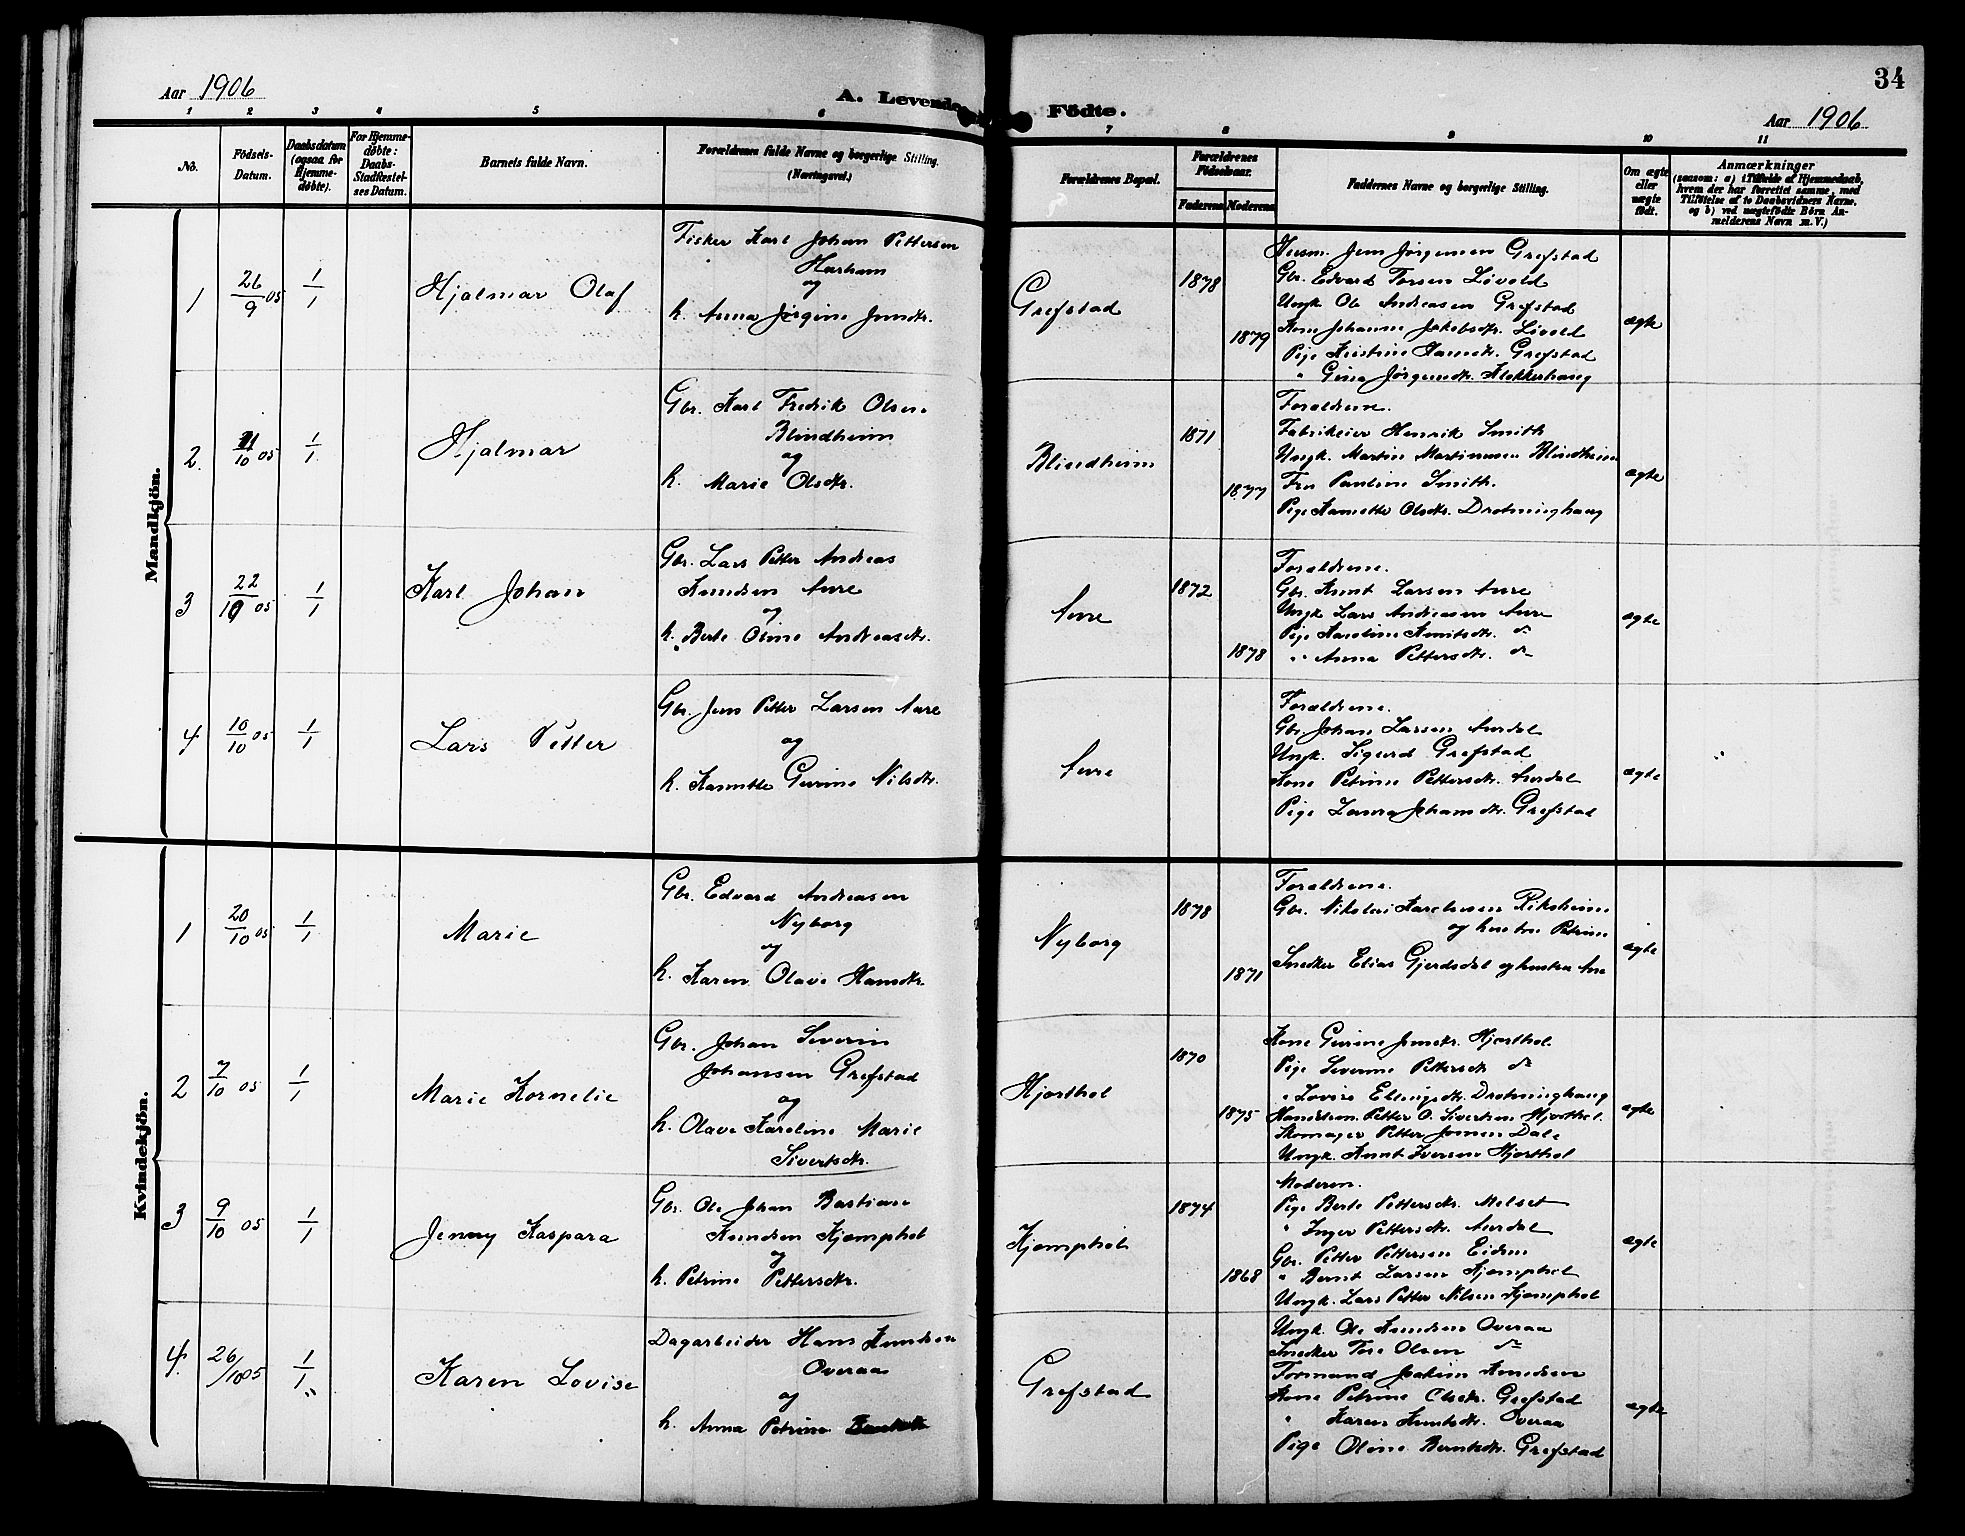 34
Aar 1906
A. Levende Födte.
Aar 1906
1 2 3 4 5 6 7 8 9 10 11
No.
Födsels-
Datum.
Daabsdatum
(ogsaa for
Hjemme-
døbte).
For Hjemme-
døbte:
Daabs-
Stadfæstel-
ses Datum.
Barnets fulde Navn.
Forældrenes fulde Navne og borgerlige Stilling.
(Næringsvei.)
Forældrenes Bopæl.
Forældrenes
Födselsaar.
Faderens
Moderens
Faddernes Navne og borgerlige Stilling.
Om ægte
eller
uægte
födt.
Anmærkninger
(saasom: a) i Tilfælde af Hjemmedaab,
hvem der har forrettet samme, med
Tilføielse af to Daabsvidners Navne,
og b) ved uægtefödte Börn An-
melderens Navn m. V.)
Mandkjön.
1
26/9 05
1/1
Hjalmar Olaf
Fisker Karl Johan Pettersen
Harham
og
h. Anna Jørgine Jensdtr.
Grefstad
1878
1879
Husm. Jens Jørgensen Grefstad
Gbr. Edvard Torsen Livold
Ungk. Ole Andreasen Grefstad
Kone Johanne Jakobsdtr. Livold
Pige Kristine Hansdtr. Grefstad
" Gina Jørgensdtr. Klokkerhaug
ægte
2.
21/10 05
1/1
Hjalmar
Gbr. Karl Fredrik Olsen
Blindheim
og
h. Marie Olsdtr.
Blindheim
1871
1877
Forældrene.
Fabrikeier Henrik Smith
Ungk. Martin Martinusen Blindheim
Fru Pauline Smith.
Pige Hansette Olsdtr. Drotninghaug
ægte
3
22/10 05
1/1
Karl Johan
Gbr. Lars Petter Andreas
Knudsen Aure
og
h. Berte Oline Andreasdtr.
Aure
1872
1878
Forældrene.
Gbr. Knut Larsen Aure
Ungk. Lars Andreasen Aure
Pige Karoline Knutsdtr. do
" Anna Pettersdtr. do
ægte
4
10/10 05
1/1
Lars Petter
Gbr. Jens Petter Larsen Aure
og
h. Hansette Gurine Nilsdtr.
Aure
Forældrene.
Gbr. Johan Larsen Aurdal
Ungk. Sigurd Grefstad
Kone Petrine Pettersdtr. Aurdal
Pige Laura Johansdtr. Grefstad
ægte
Kvindekjön.
1
20/10 05
1/1
Marie
Gbr. Edvard Andreasen
Nyborg
og
h. Karen Olave Hansdtr.
Nyborg
1878
1871
Forældrene.
Gbr. Nikolai Karelusen Riksheim
og hustru Petrine
Snedker Elias Gjerdsdal og hustru Ane
ægte
2
7/10 05
1/1
Marie Kornelie
Gbr. Johan Severin
Johansen Grefstad
og
h. Olave Karoline Marie
Sivertsdtr.
Hjorthol
1870
1875
Kone Gurine Jensdtr. Hjorthol.
Pige Severine Pettersdtr do
" Lovise Ellingsdtr. Drotninghaug
Handelsm. Petter O. Sivertsen Hjorthol.
Skomager Petter Jonsen Dale
Ungk. Knut Iversen Hjorthol
ægte
3
9/10 05
1/1
Jenny Kaspara
Gbr. Ole Johan Bastian
Knudsen Kjemphol
og
h. Petrine Pettersdtr.
Kjemphol
1874
1868
Moderen.
Pige Berte Pettersdtr. Melset
" Inger Pettersdtr. Aurdal
Gbr. Petter Pettersen Eidem
" Bernt Larsen Kjemphol
Ungk. Lars Petter Nilsen Kjemphol
ægte
4.
26/10 05
1/1
Karen Lovise
Dagarbeider Hans Knudsen
Overaa
og
h. Anna Petrine
Grefstad
Ungk. Ole Knudsen Overaa
Snedker Tore Olsen do
Formand Joakim Knudsen
Kone Petrine Olsdtr. Grefstad
" Karen Knutsdtr. Overaa
Pige Oline Berntsdtr. Grefstad
ægte